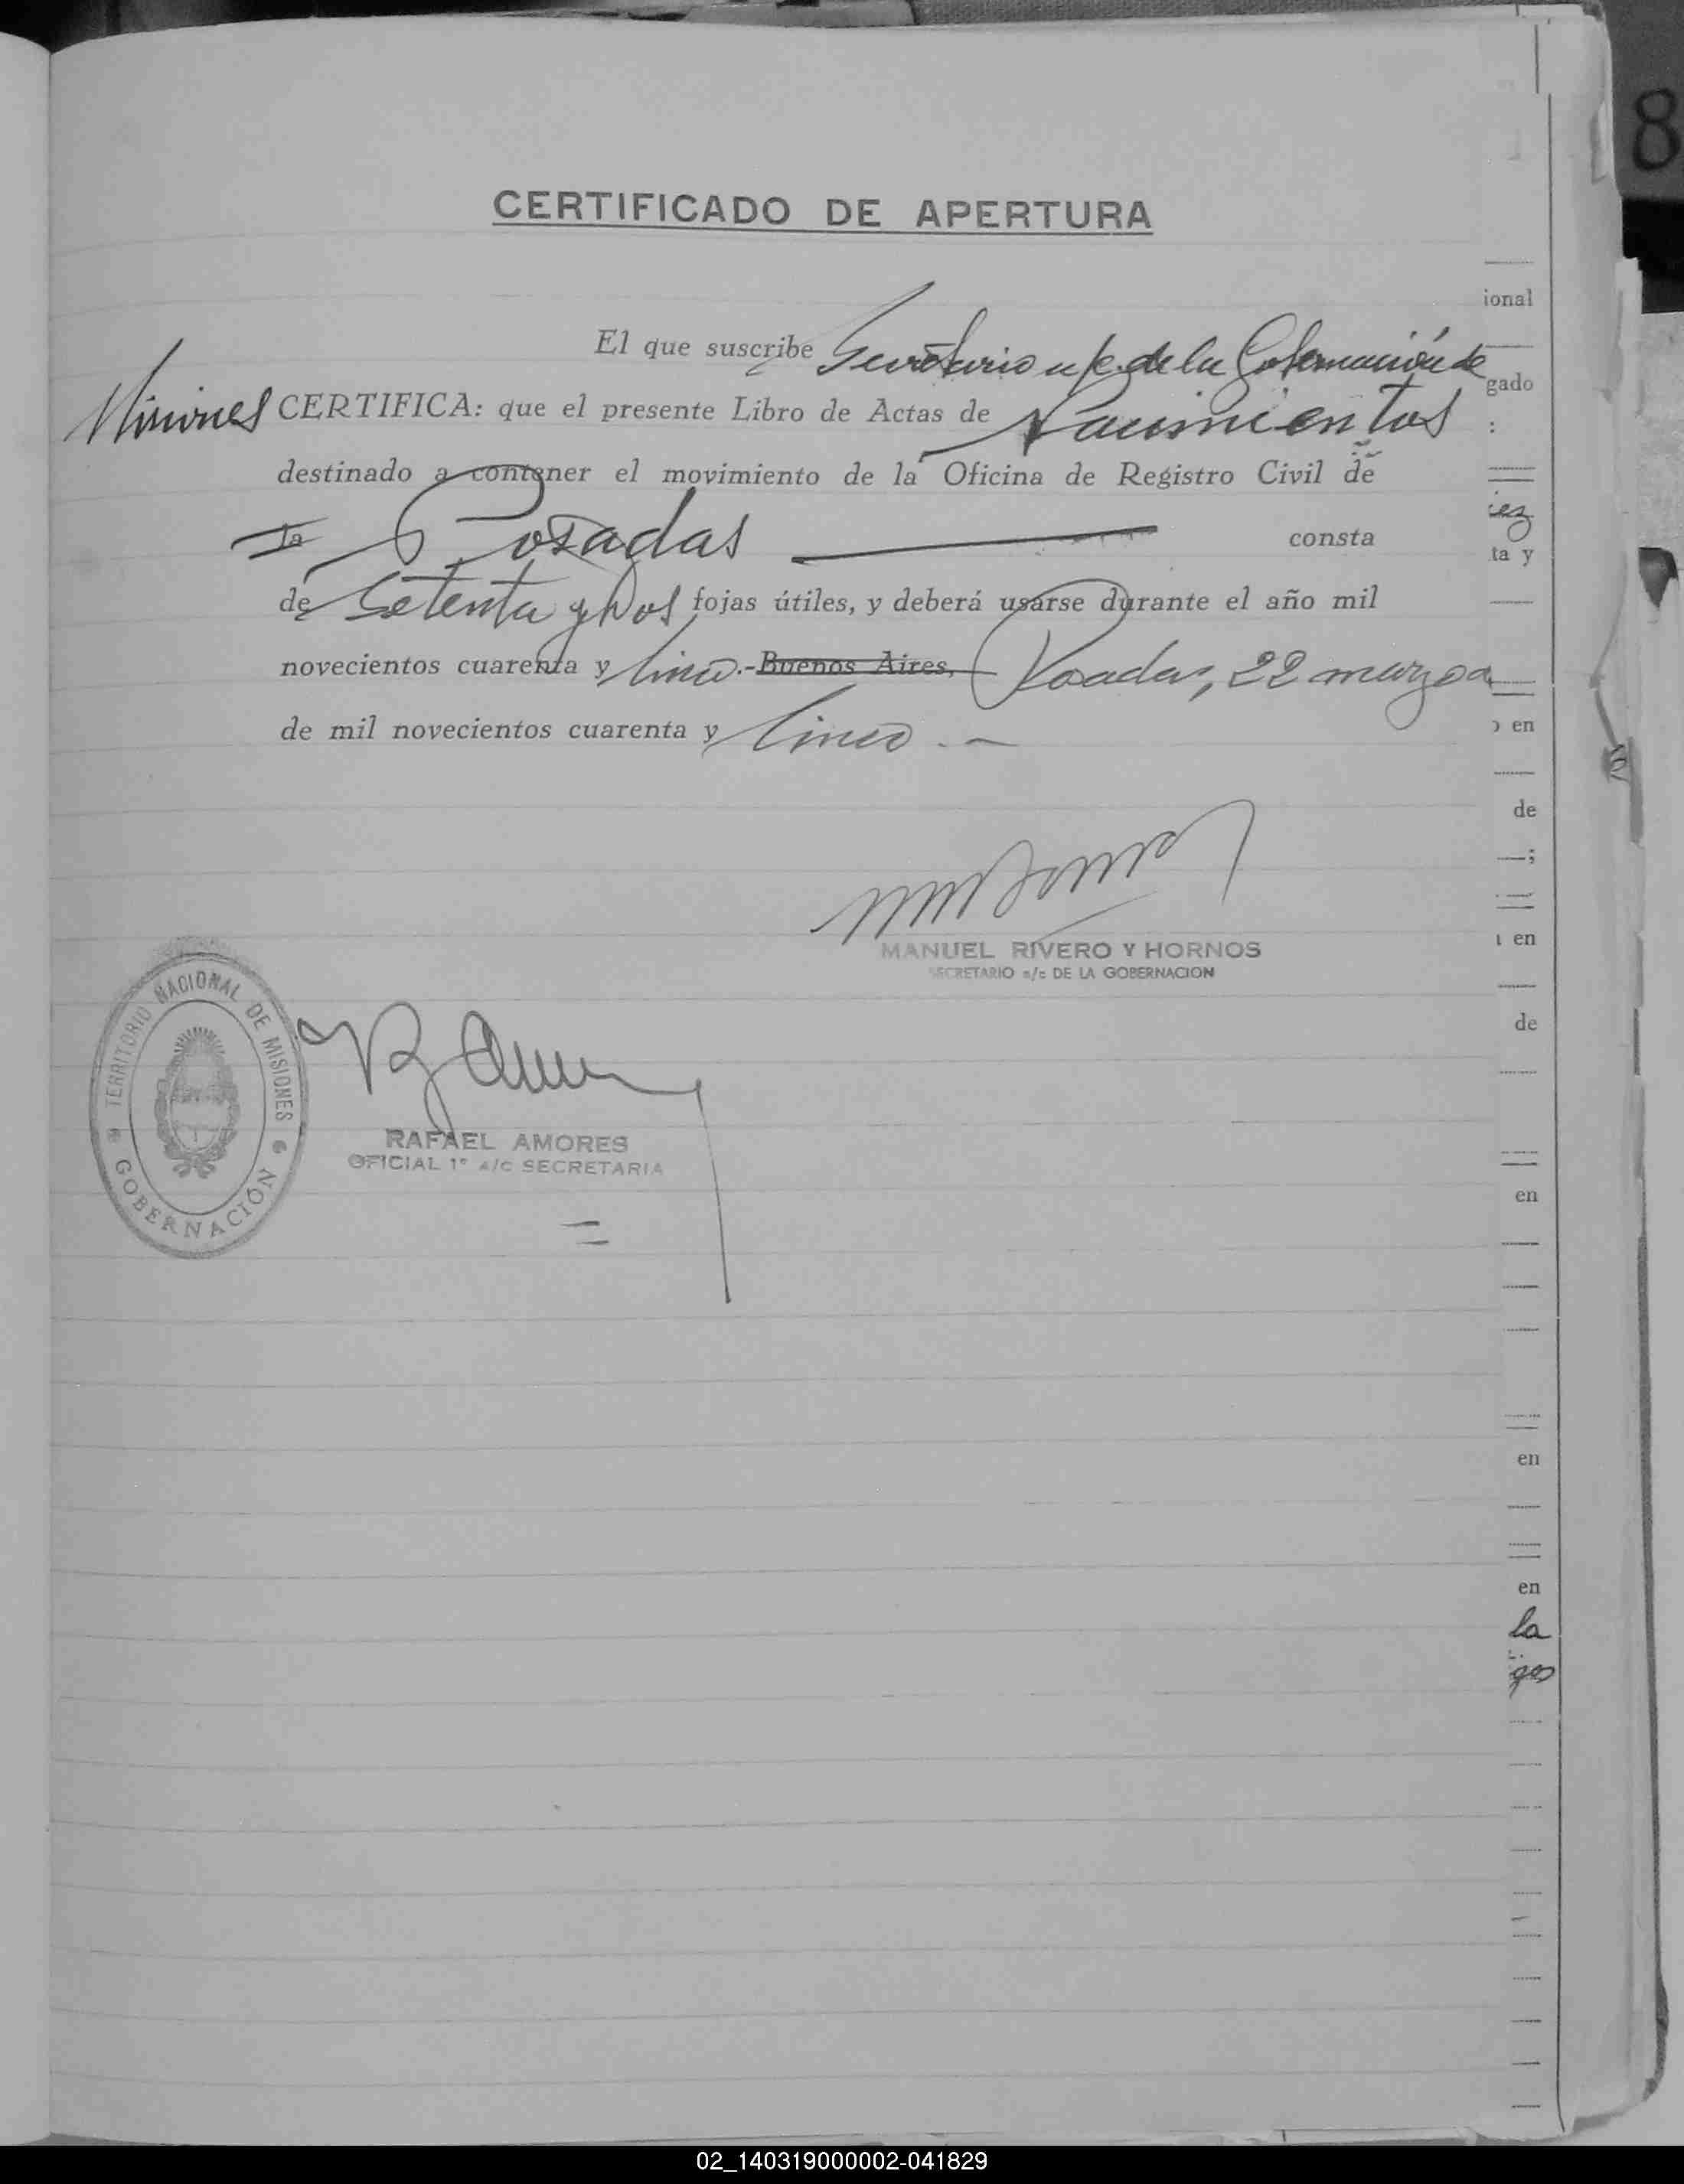 8
CERTIFICADO DE APERTURA
El que suscribe Secretario a/c. de la Gobernación de
Misiones CERTIFICA: que el presente Libro de Actas de Nacimientos
destinado a contener el movimiento de la Oficina de Registro Civil de
la Posadas consta
de Setenta y Dos fojas útiles, y deberá usarse durante el año mil
novecientos cuarenta y cinco.- Buenos Aires, Posadas, 22 marzo
de mil novecientos cuarenta y cinco.-
MANUEL RIVERO Y HORNOS
SECRETARIO a/c DE LA GOBERNACION
TERRITORIO NACIONAL DE MISIONES
GOBERNACIÓN
RAFAEL AMORES
OFICIAL 1° A/C SECRETARIA
ional
gado
:
ta y
en
de
en
de
en
en
en
la
02_140319000002-041829